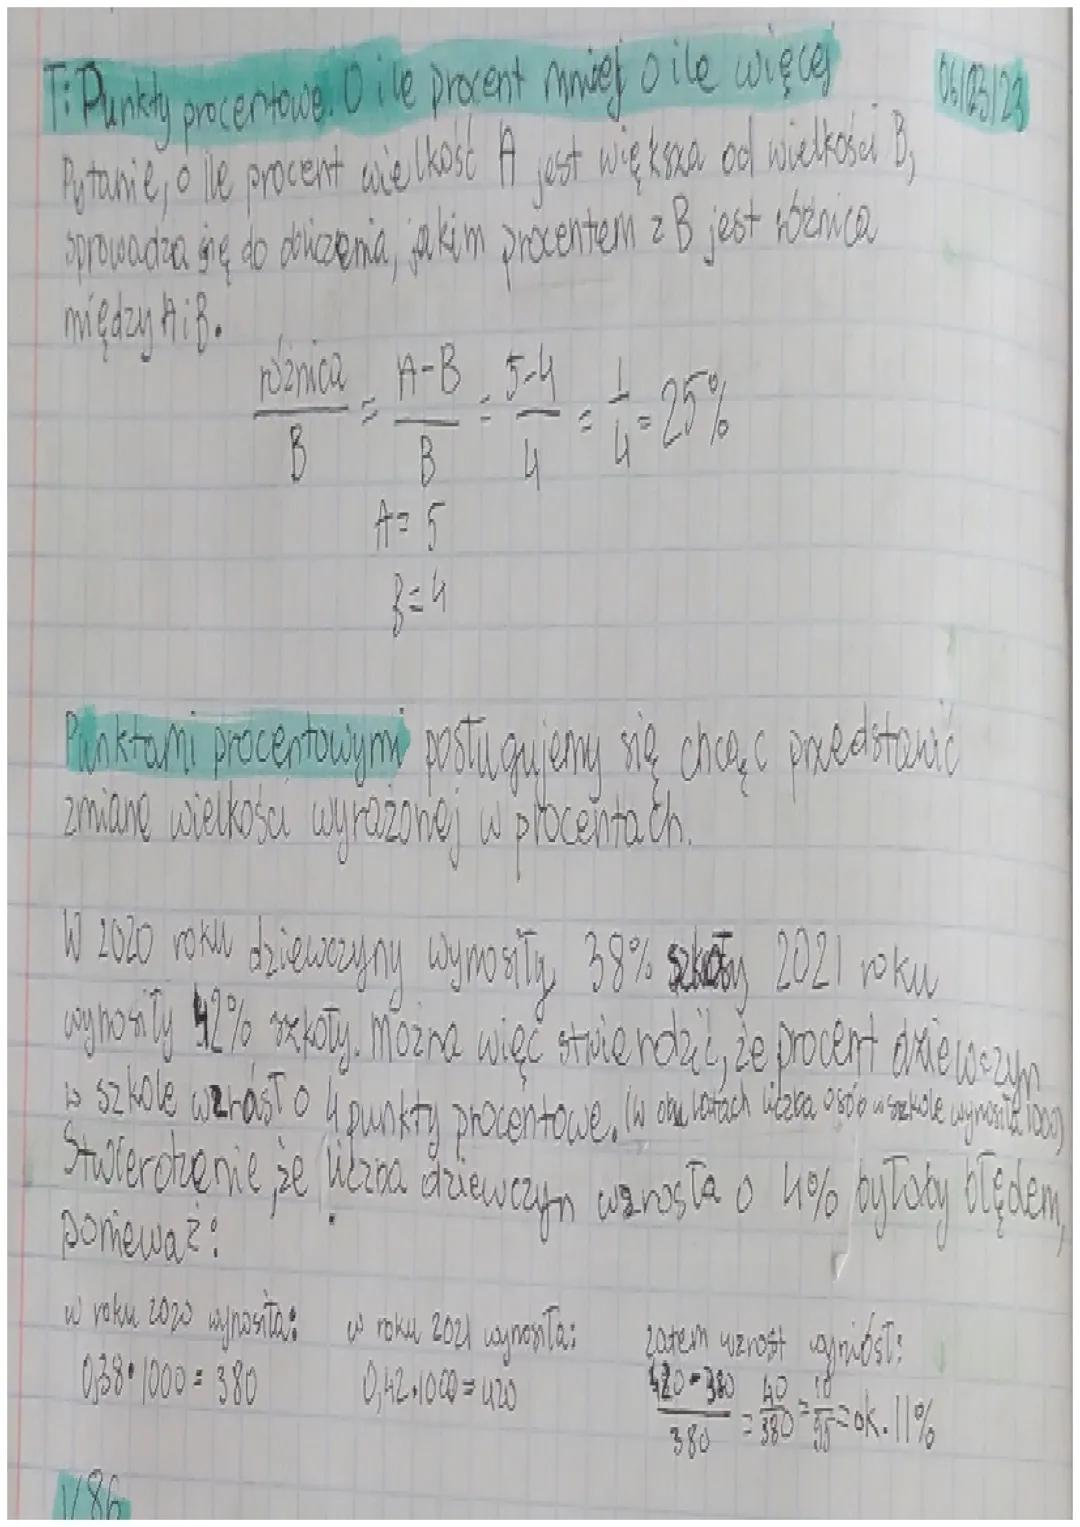 T: Punkty procentowe. O ile procent mniej o ile więcej
06/03/23
Pytanie, o ile procent wielkość A jest większa od wielkości B,
sprowadza się do obliczenia, jakim procentem z B jest różnica
między A i B.
różnica/B = A-B/B = 5-4/4 = 1/4 = 25%
A = 5
B = 4
Punktami procentowymi posługujemy się chcąc przedstawić
zmianę wielkości wyrażonej w procentach.
W 2020 roku dziewczyny wynosiły 38% szkoły 2021 roku
wynosiły 42% szkoły. Można więc stwierdzić, że procent dziewczyn
w szkole wzrósł o 4 punkty procentowe. (w obu latach liczba osób w szkole wynosiła 1000)
Stwierdzenie, że liczba dziewczyn wzrosła o 4% byłoby błędem,
ponieważ:
w roku 2020 wynosiła: w roku 2021 wynosiła: zatem wzrost wyniósł:
0,38·1000 = 380 0,42·1000 = 420 420-380/380 = 40/380 = 10/95 = ok. 11%
1/86